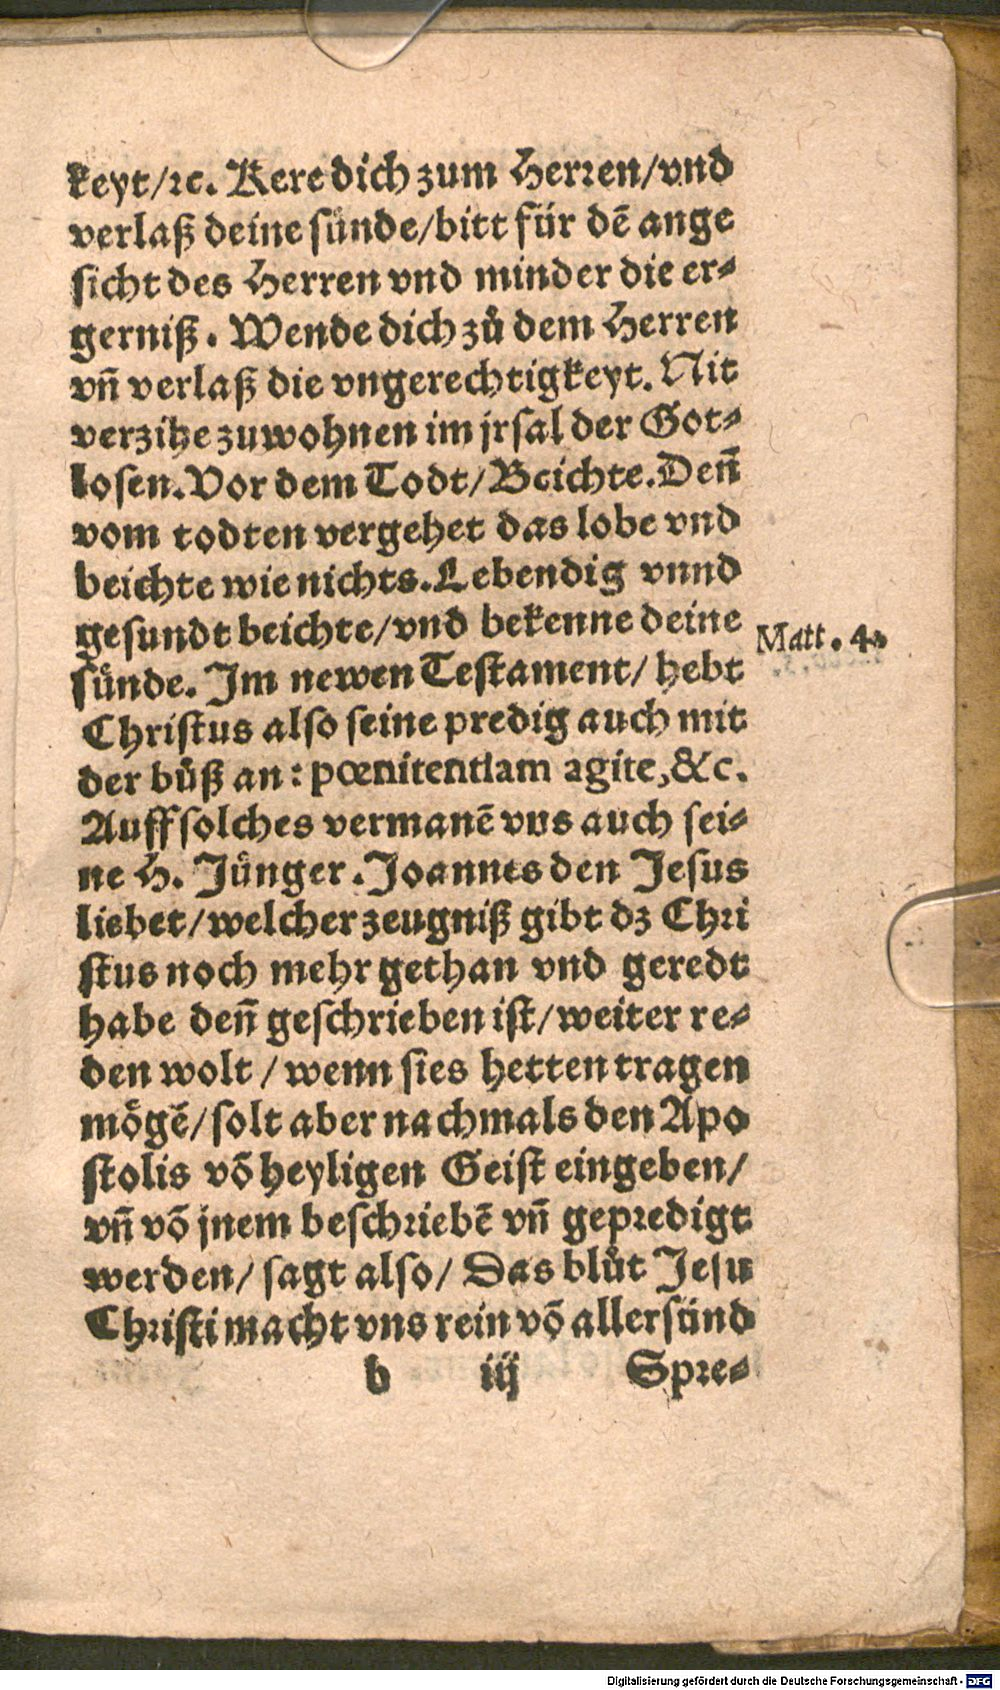 keyt/ꝛc. Kere dich zum Herꝛen/vnd
verlaß deine sünde/bitt für dẽ ange
sicht des Herren vnd minder die er⸗
gerniß. Wende dich zů dem Herren
vñ verlaß die vngerechtigkeyt. Nit
verzihe zu wohnen im jrsal der Got⸗
losen. Vor dem Todt/Beichte. Deñ
vom todten vergehet das lobe vnd
beichte wie nichts. Lebendig vnnd
gesundt beichte/vnd bekenne deine
Matt. 4.
sünde. Im newen Testament/hebt
Christus also seine predig auch mit
der bůß an: pœnitentiam agite, &c.
Auff solches vermanẽ vns auch sei⸗
ne H. Jünger. Joannes den Jesus
liebet/welcher zeugniß gibt dz Chꝛi
stus noch mehr gethan vnd geredt
habe deñ geschrieben ist/weiter re⸗
den wolt/wenn sies hetten tragen
mögẽ/solt aber nachmals den Apo
stolis võ heyligen Geist eingeben/
vñ võ jnem beschꝛiebẽ vñ gepꝛedigt
werden/sagt also/Das blůt Jesu
Chꝛisti macht vns rein võ aller sünd
b iij Spꝛe⸗
Digitalisierung gefördert durch die Deutsche Forschungsgemeinschaft - DFG